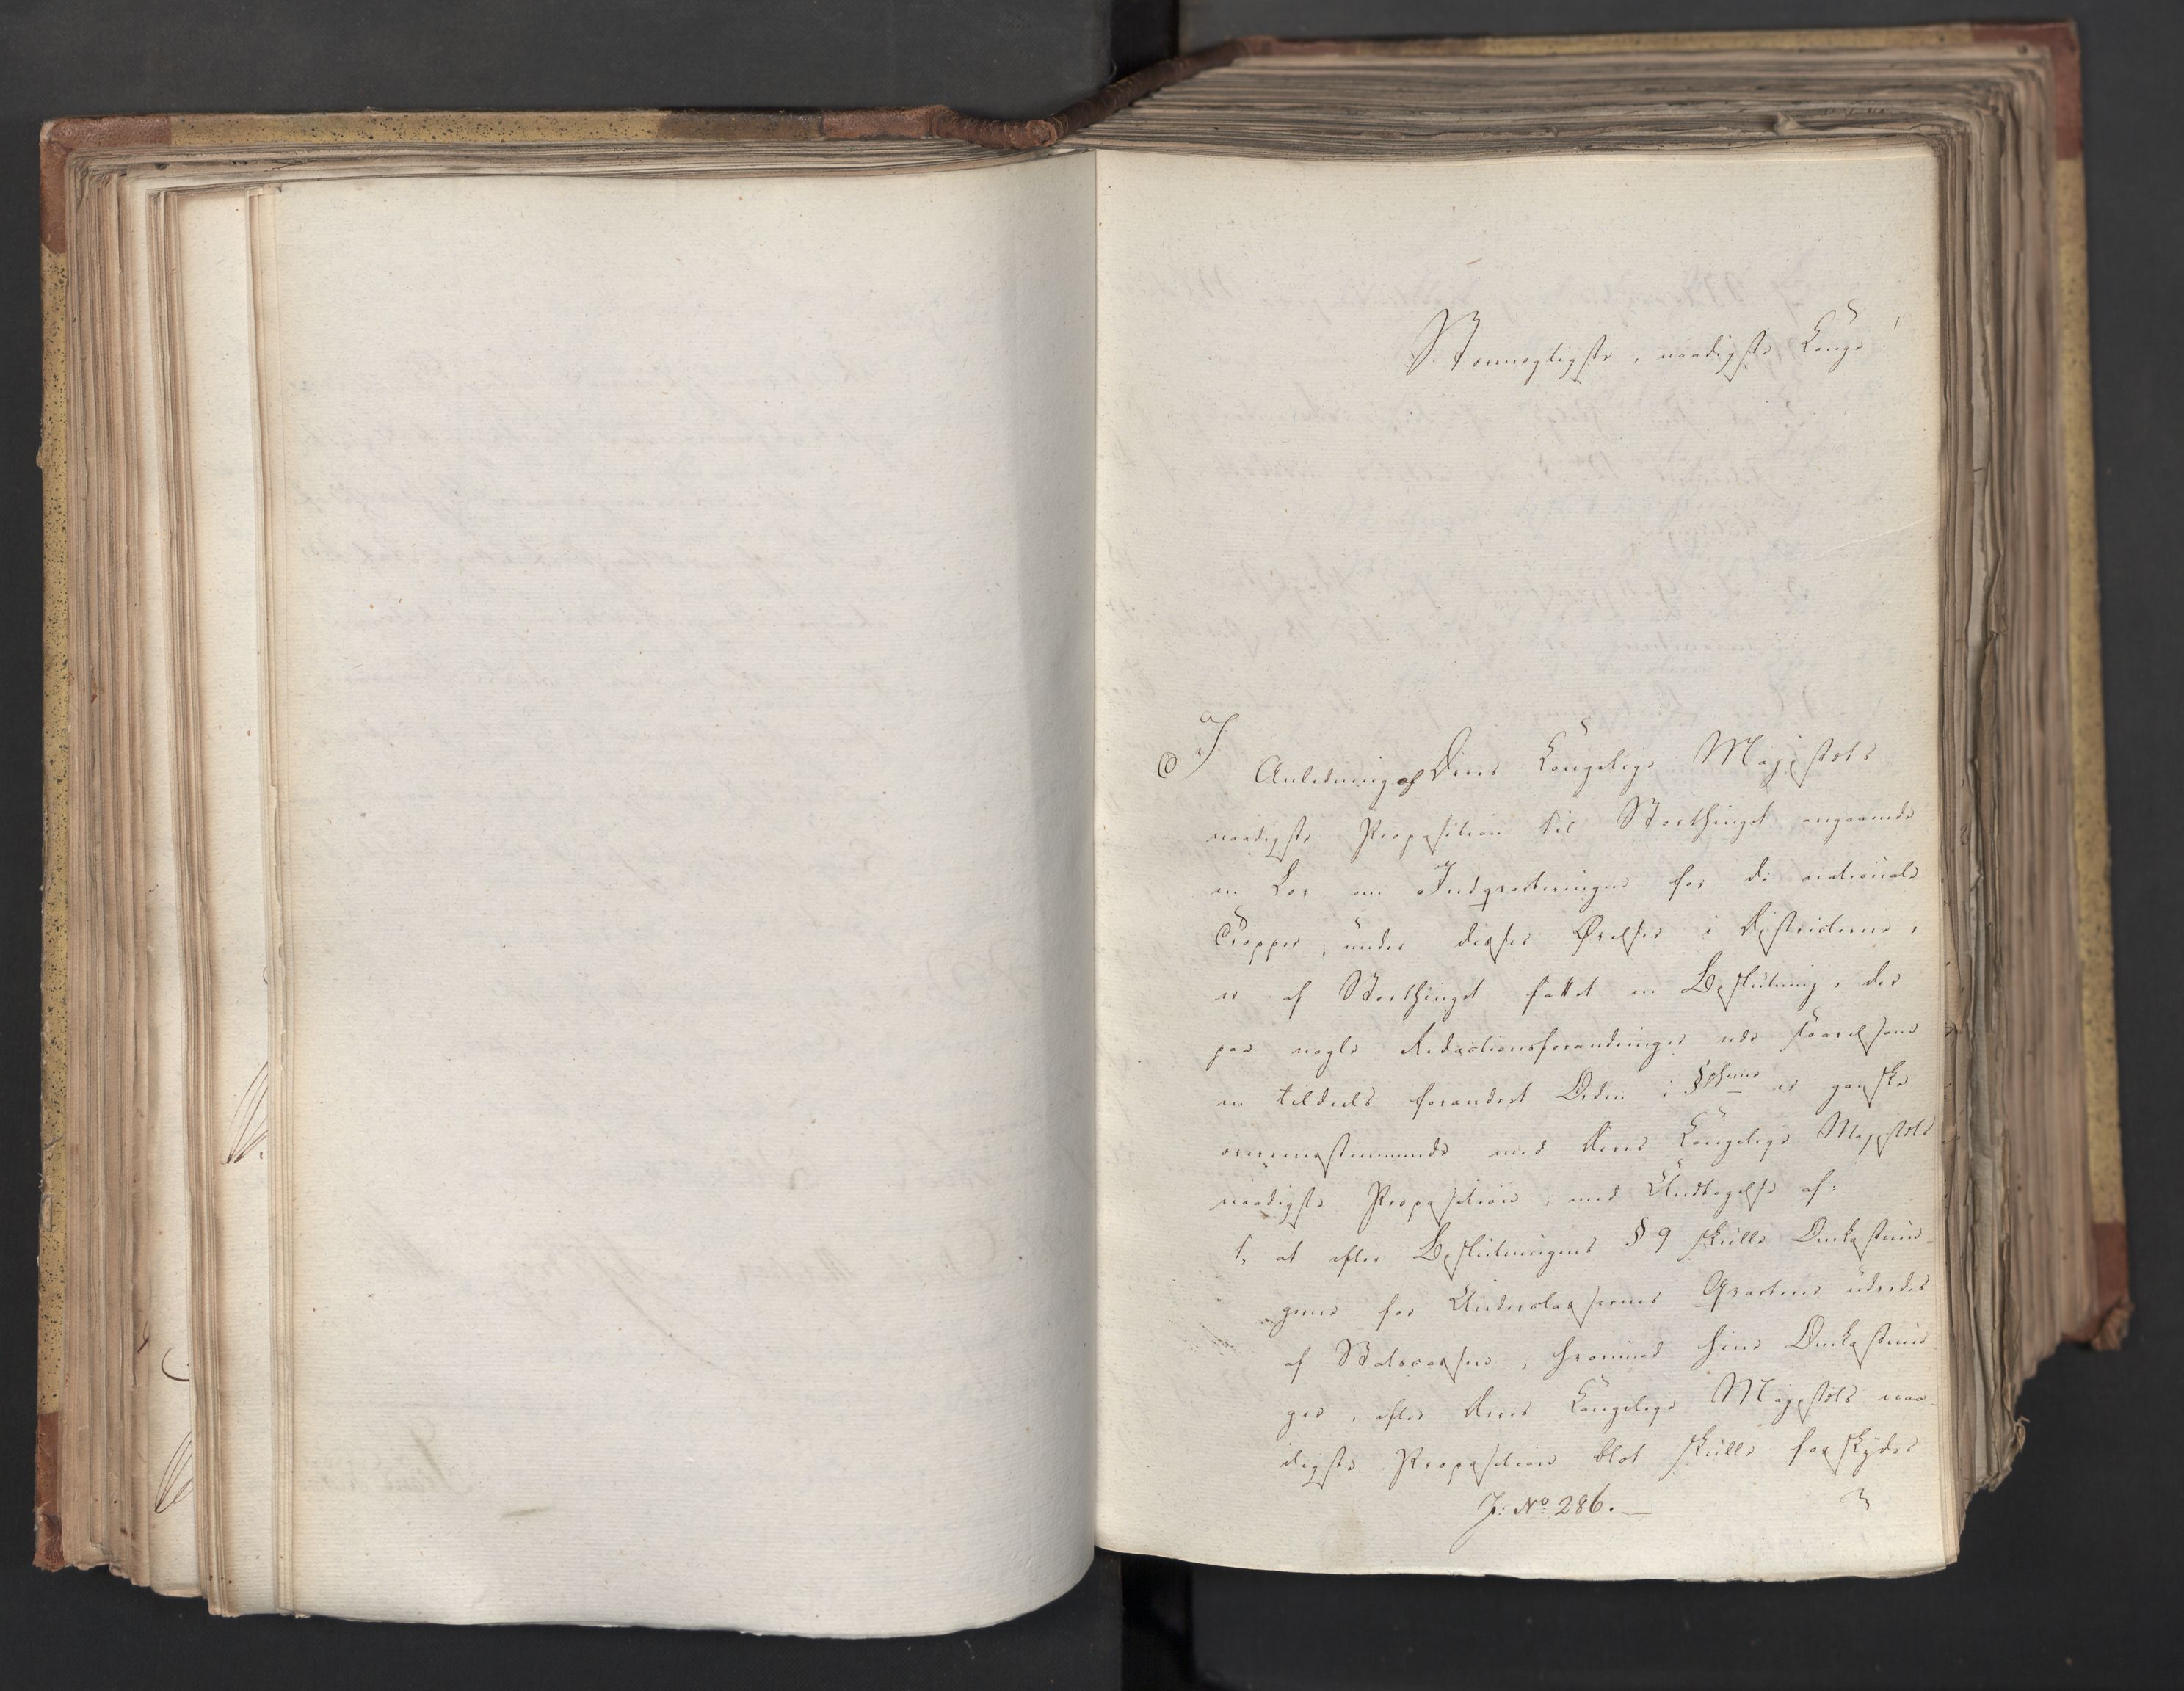 Stormægtigste, naadigste Konge!
I Anledning af Deres Kongelige Majestæts
naadigste Proposition til Storthinget angaaende
en Lov om Indqvarteringen for de nationale
Tropper, under disses Øvelser i Districterne,
er af Storthinget fattet en Beslutning, der
paa nogle Redactionsforandringer nær saavelsom
en tildeels forandret Orden i §§erne er ganske
overeensstemmende med Deres Kongelige Majestæts
naadigste Proposition, med Undtagelse af:
1, at efter Beslutningens § 9 skulle Omkostnin-
gerne for Underclassernes Qvarterer udredes
af Statscassen, hvorimod hine Omkostnin-
ger, efter Deres Kongelige Majestæts naa-
digste Proposition blot skulle forskydes
J: No 286. —